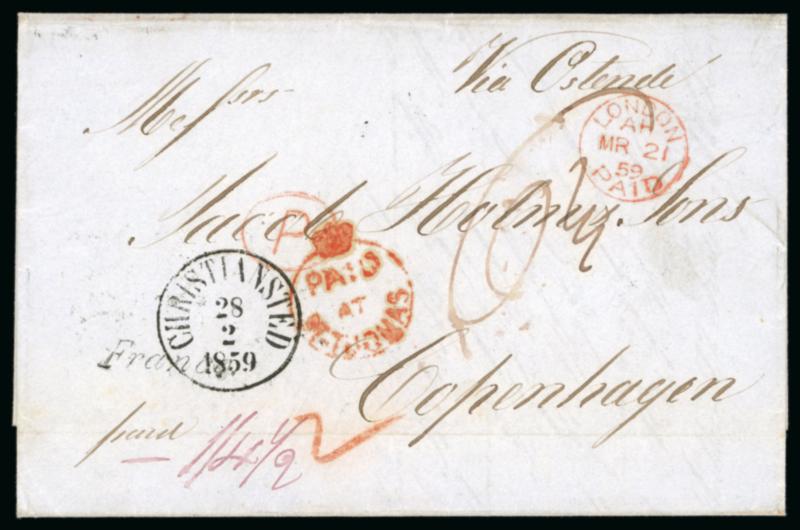 Via Ostende
Messrs
LONDON
AH
MR 21
59
PAID
Jacob Holm & Sons
P
PAID
AT
ST. THOMAS.
CHRISTIANSTED
28
2
1859
Franco
Copenhagen
paid
1/4 1/2
2